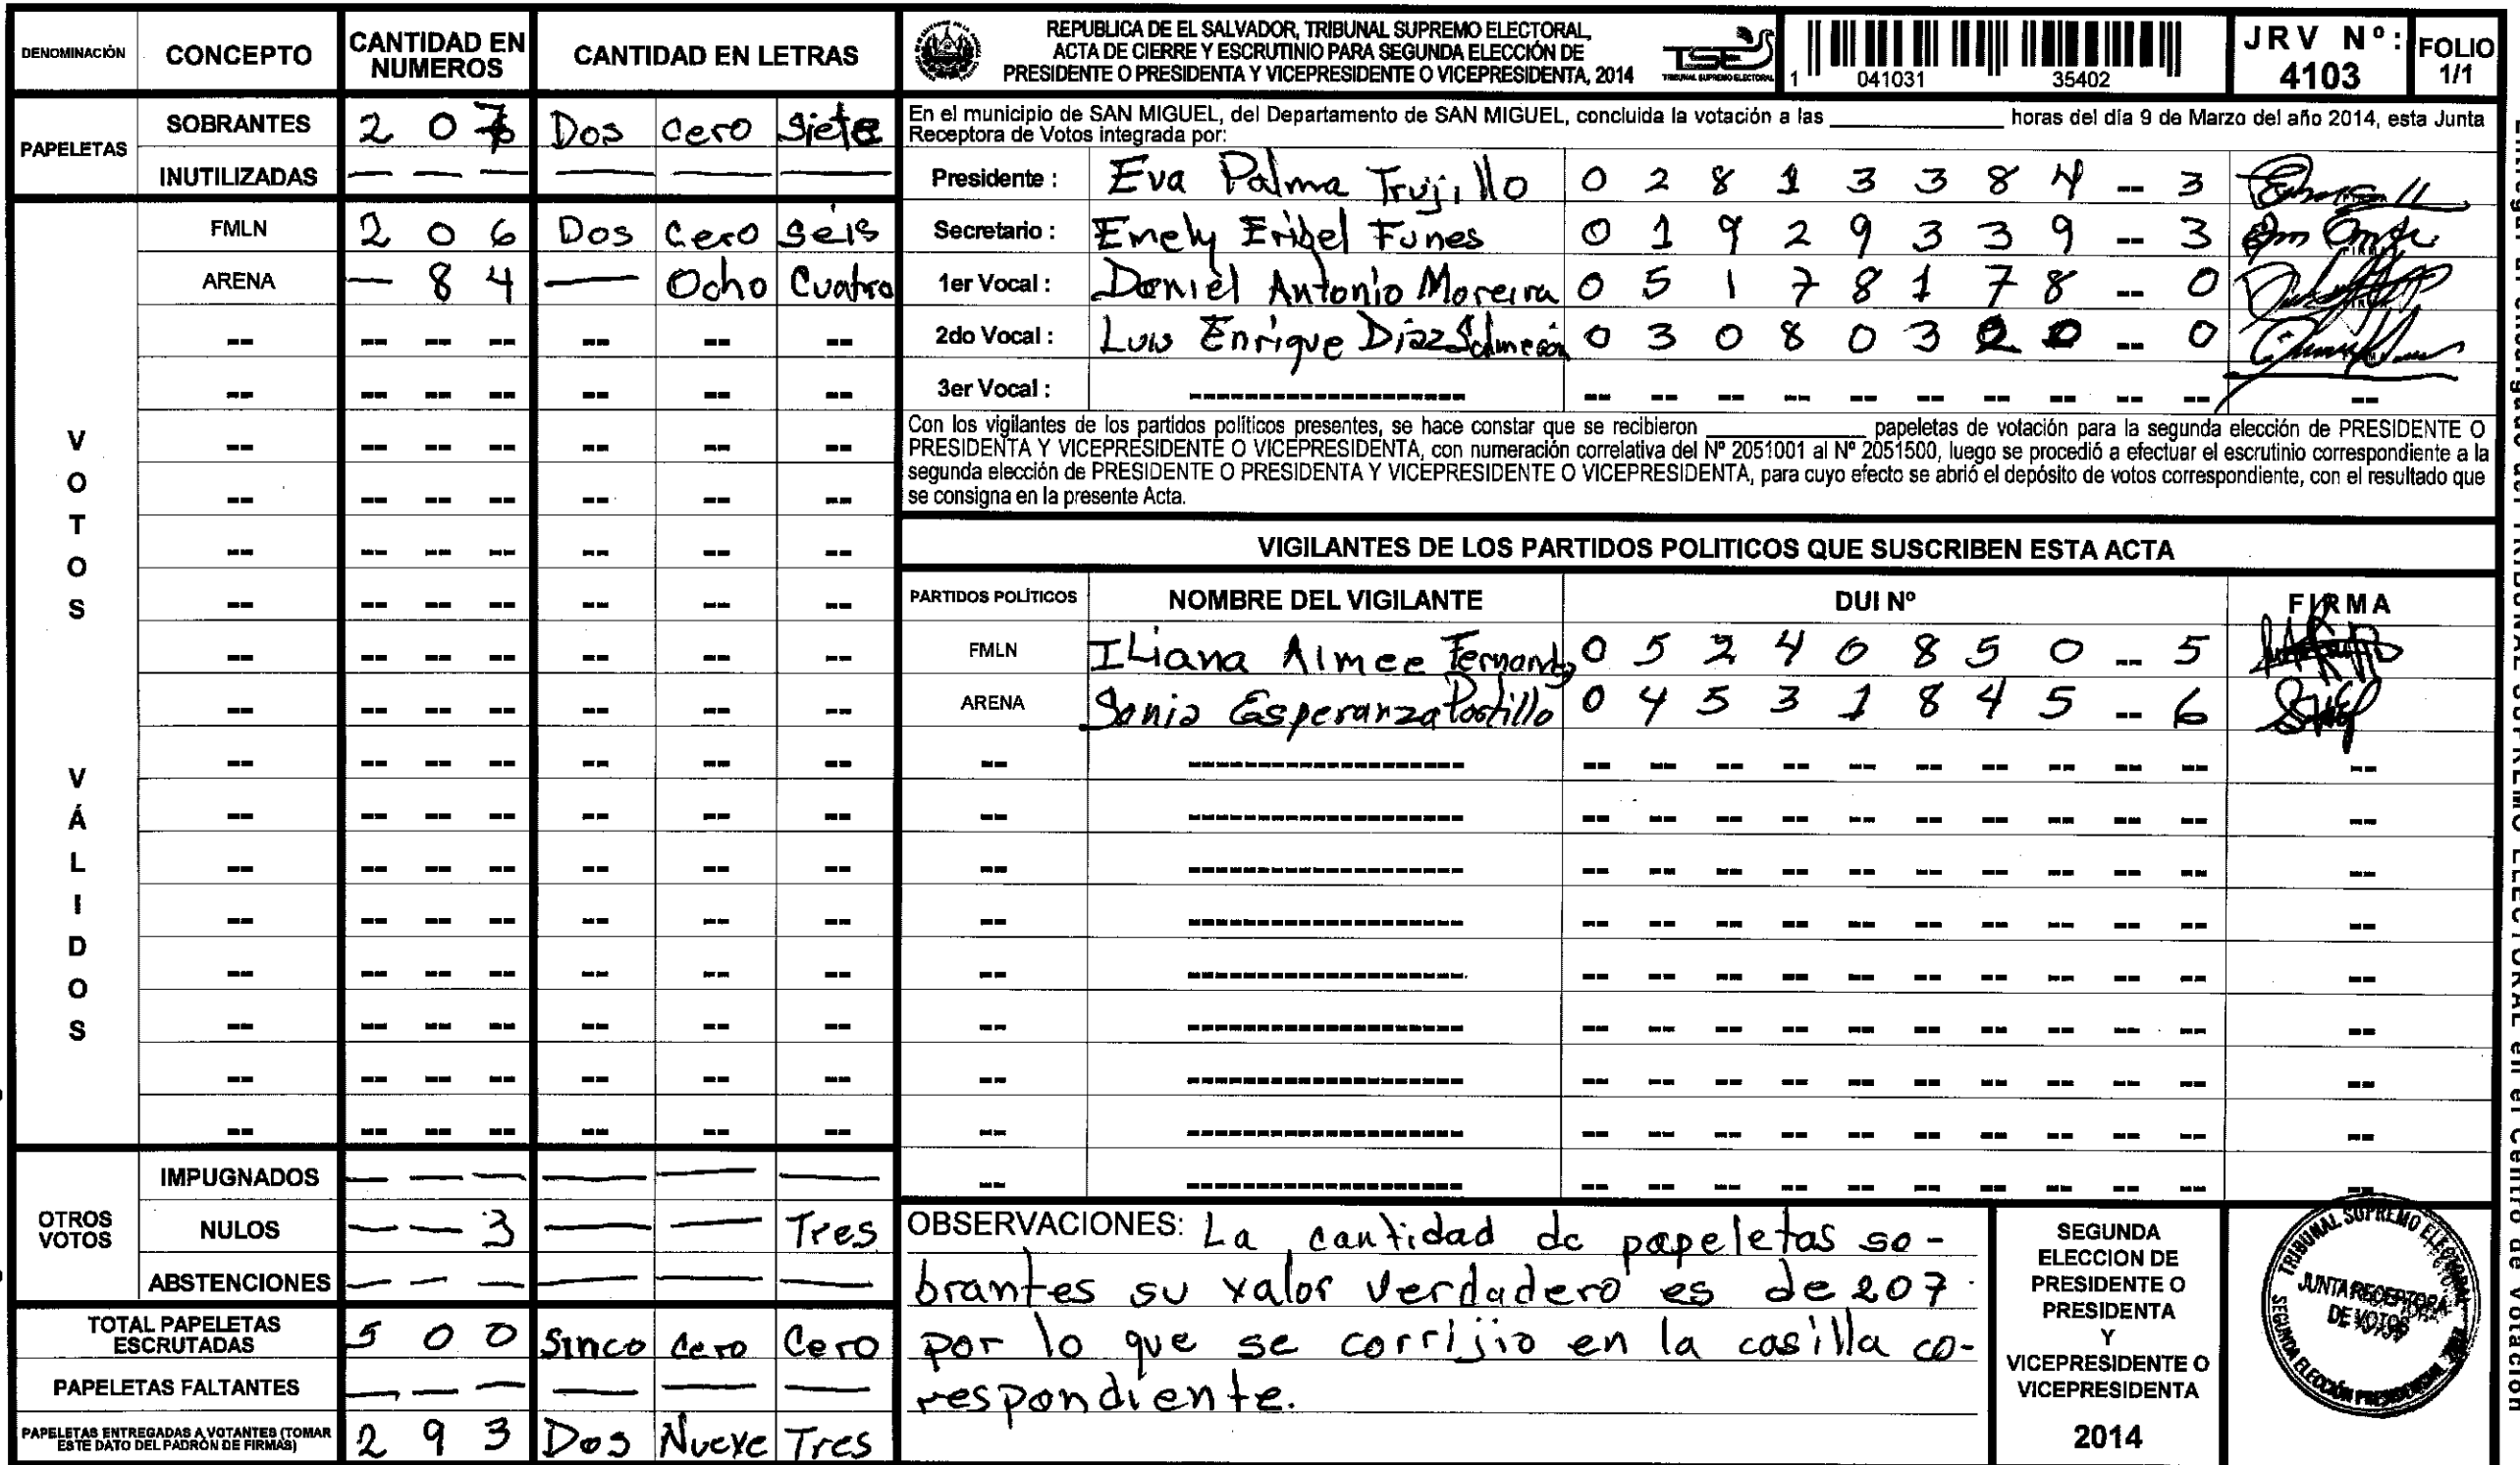 DENOMINACIÓN CONCEPTO CANTIDAD EN NUMEROS CANTIDAD EN LETRAS
PAPELETAS
SOBRANTES 2 0 7 Dos Cero Siete
INUTILIZADAS — — — — — —
VOTOS VÁLIDOS
FMLN 2 0 6 Dos Cero Seis
ARENA — 8 4 — Ocho Cuatro
OTROS VOTOS
IMPUGNADOS — — — — — —
NULOS — — 3 — — Tres
ABSTENCIONES — — — — — —
TOTAL PAPELETAS ESCRUTADAS 5 0 0 Sinco Cero Cero
PAPELETAS FALTANTES — — — — — —
PAPELETAS ENTREGADAS A VOTANTES (TOMAR ESTE DATO DEL PADRÓN DE FIRMAS) 2 9 3 Dos Nueve Tres
REPUBLICA DE EL SALVADOR, TRIBUNAL SUPREMO ELECTORAL,
ACTA DE CIERRE Y ESCRUTINIO PARA SEGUNDA ELECCIÓN DE
PRESIDENTE O PRESIDENTA Y VICEPRESIDENTE O VICEPRESIDENTA, 2014
TSE
TRIBUNAL SUPREMO ELECTORAL
1 041031 35402
JRV Nº: 4103
FOLIO 1/1
En el municipio de SAN MIGUEL, del Departamento de SAN MIGUEL, concluida la votación a las ____ horas del día 9 de Marzo del año 2014, esta Junta
Receptora de Votos integrada por:
Presidente : Eva Palma Trujillo 0 2 8 1 3 3 8 4 -- 3
Secretario : Emely Eribel Funes 0 1 9 2 9 3 3 9 -- 3
1er Vocal : Daniel Antonio Moreira 0 5 1 7 8 1 7 8 -- 0
2do Vocal : Luis Enrique Diaz 0 3 0 8 0 3 2 0 -- 0
3er Vocal :
Con los vigilantes de los partidos políticos presentes, se hace constar que se recibieron ____ papeletas de votación para la segunda elección de PRESIDENTE O
PRESIDENTA Y VICEPRESIDENTE O VICEPRESIDENTA, con numeración correlativa del Nº 2051001 al Nº 2051500, luego se procedió a efectuar el escrutinio correspondiente a la
segunda elección de PRESIDENTE O PRESIDENTA Y VICEPRESIDENTE O VICEPRESIDENTA, para cuyo efecto se abrió el depósito de votos correspondiente, con el resultado que
se consigna en la presente Acta.
VIGILANTES DE LOS PARTIDOS POLITICOS QUE SUSCRIBEN ESTA ACTA
PARTIDOS POLÍTICOS NOMBRE DEL VIGILANTE DUI Nº FIRMA
FMLN ILiana Aimee Fernandz 0 5 2 4 0 8 5 0 -- 5
ARENA Sonia Esperanza Portillo 0 4 5 3 1 8 4 5 -- 6
OBSERVACIONES: La cantidad de papeletas so-
brantes su valor verdadero es de 207
por lo que se corrijio en la casilla co-
respondiente.
SEGUNDA
ELECCION DE
PRESIDENTE O
PRESIDENTA
Y
VICEPRESIDENTE O
VICEPRESIDENTA
2014
TRIBUNAL SUPREMO ELECTORAL
JUNTA RECEPTORA
DE VOTOS
SEGUNDA ELECCIÓN PRESIDENCIAL
TRIBUNAL SUPREMO ELECTORAL en el Centro de Votación